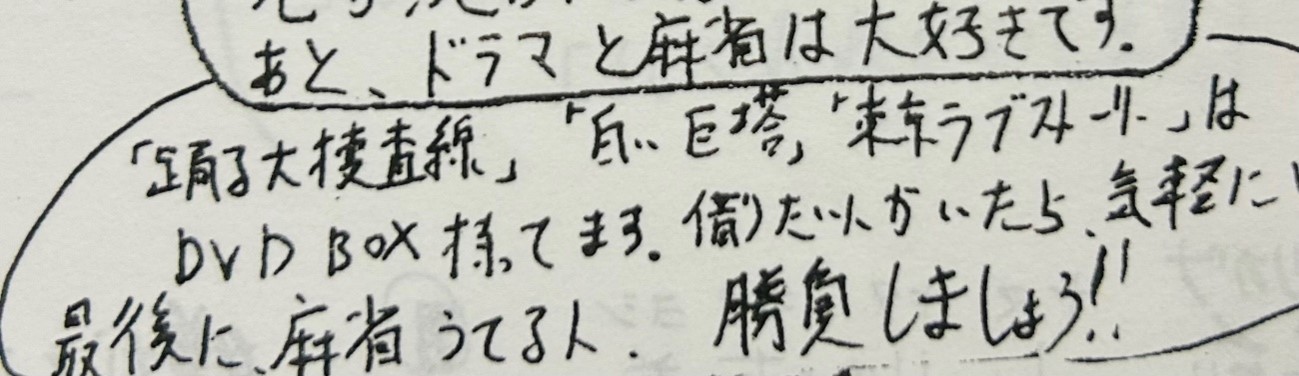 あと、ドラマと麻雀は大好きです。
「踊る大捜査線」「白い巨塔」「東京ラブストーリー」は
DVD BOX 持ってます。借りたい人がいたら、気軽に
最後に、麻雀うてる人、勝負しましょう!!